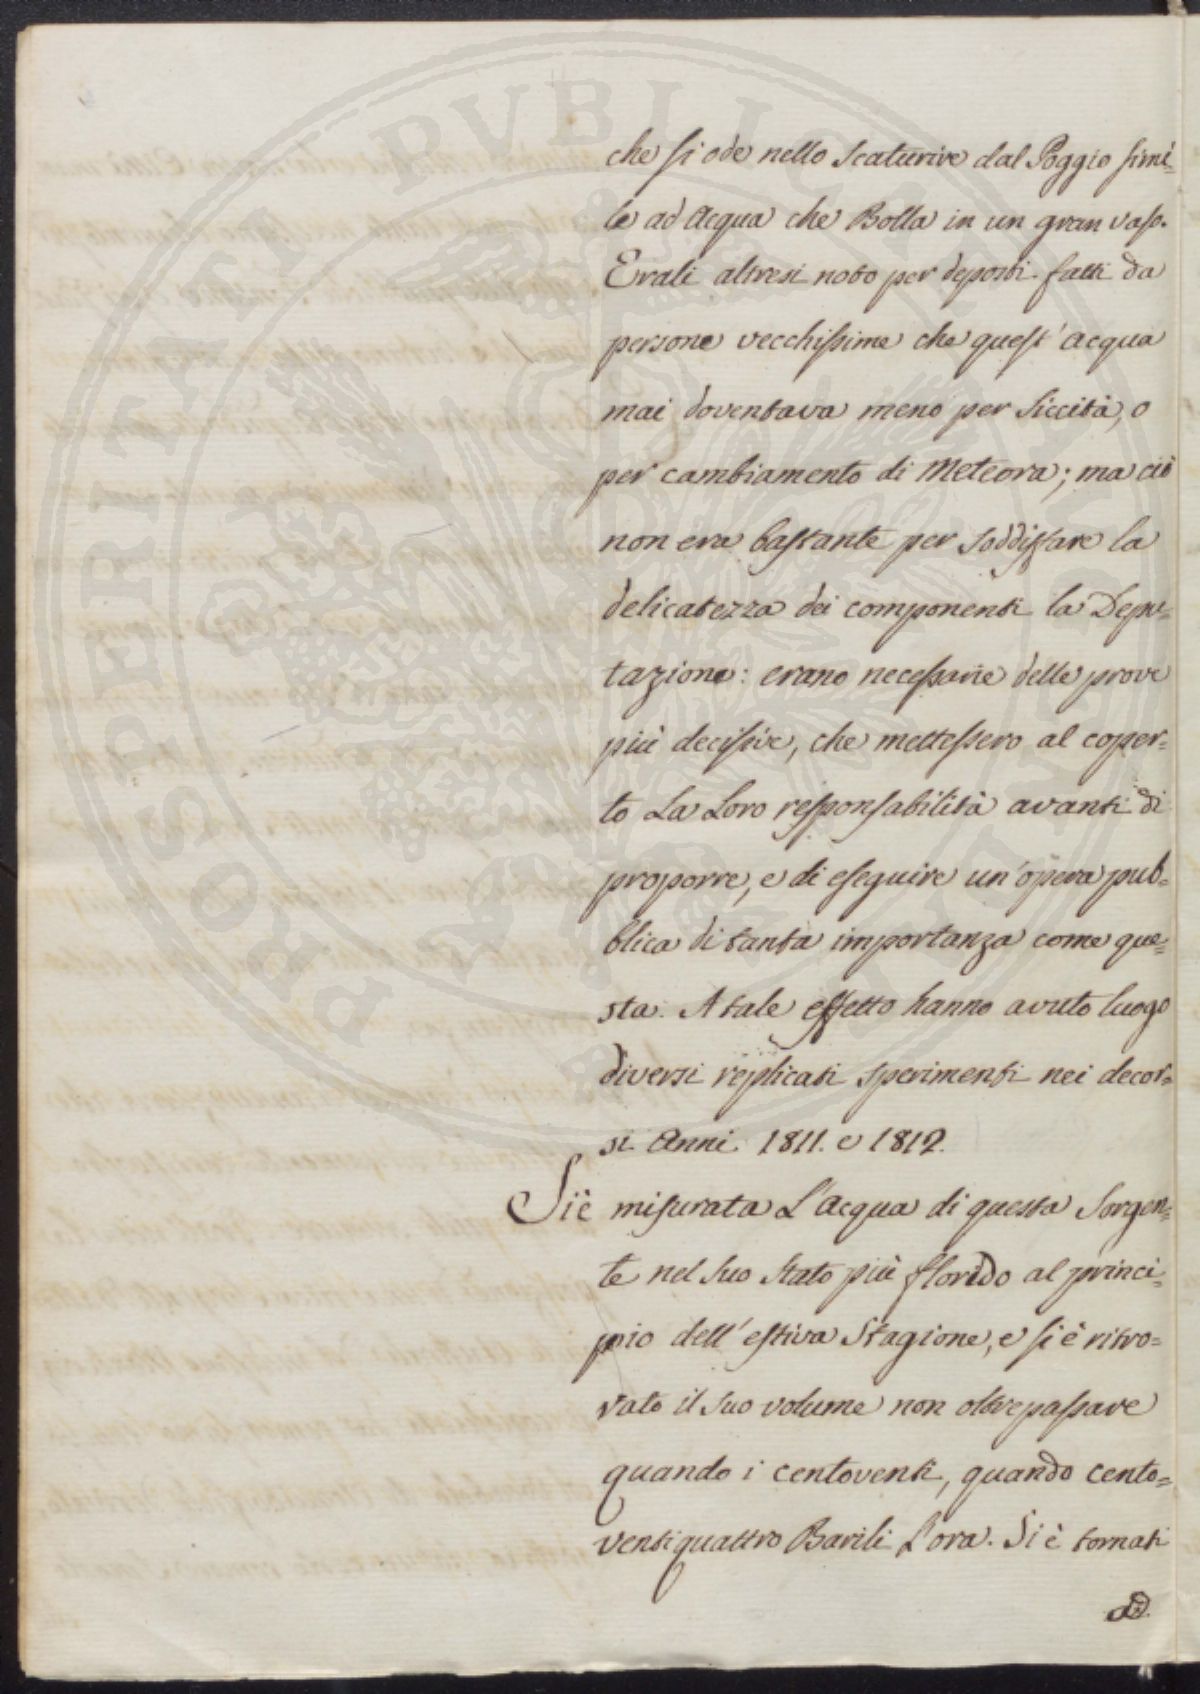 che si ode nello Scaturire dal Poggio simi=
le ad Acqua che Bolla in un gran vaso.
Erali altresi noto per deposti fatti da
persone vecchissime che quest'acqua
mai doventava meno per Siccità, o
per cambiamento di Meteora; ma ciò
non era bastante per soddisfare la
delicatezza dei componenti la Depu=
tazione: erano necessarie delle prove
più decisive, che mettessero al coper=
to La Loro responsabilità avanti di
proporre, e di eseguire un'opera pub=
blica di tanta importanza come que=
sta. A tale effetto hanno avuto luogo
diversi replicati sperimenti nei decor=
si Anni 1811. e 1812.
Si è misurata L'Acqua di questa Sorgen=
te nel suo Stato più florido al princi=
pio dell'estiva Stagione, e si è ritro=
vato il suo volume non oltrepassare
quando i centoventi, quando cento=
ventiquattro Barili L'ora. Si è tornati
ad.
PROSPERITATI PVBLICAE